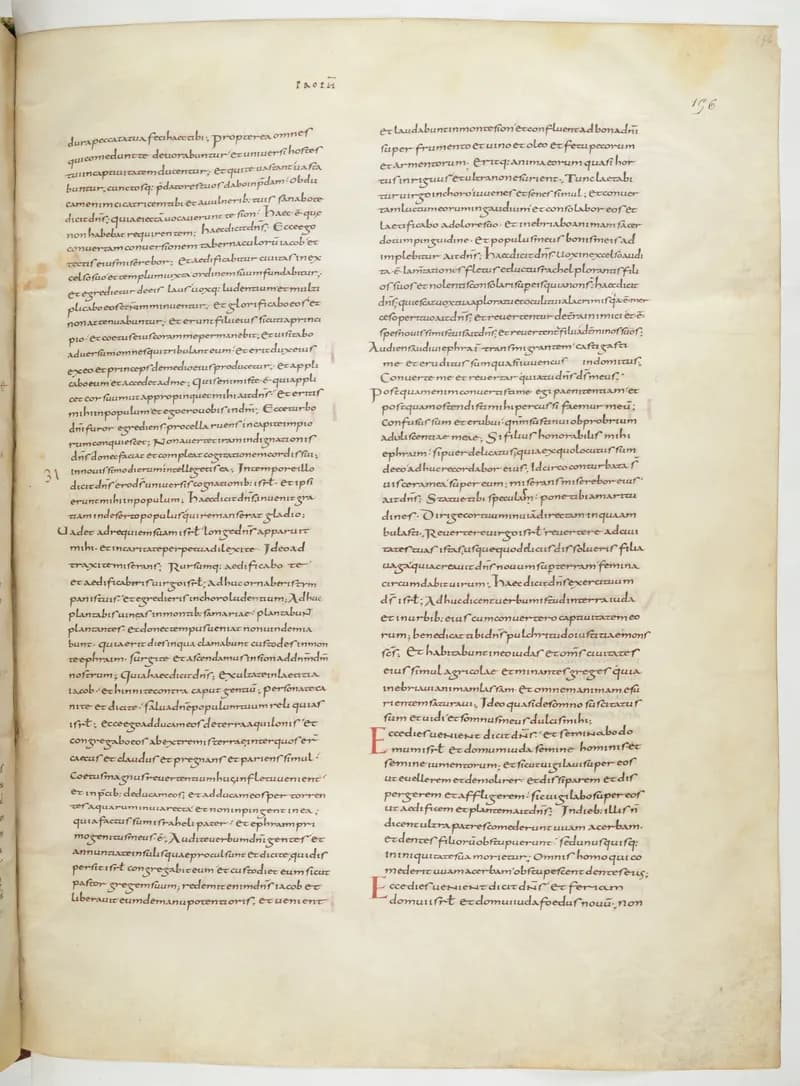 196
dura peccata tua feci haec tibi; Propterea omnes
qui comedunt te devorabuntur et universi hostes
tui in captivitatem ducentur; et qui te vastant vasta
buntur, cunctosq; p̄datores tuos dabo in p̄dam; Obdu
cam enim cicatricem tibi et a vulnerib; tuis sanabo te
dicit dn̄s; quia eiectā vocaverunt te sion; Haec ē que
non habebat requirentem; haec dicit dn̄s; Ecce ego
convertam conversionem tabernaculorū iacob et
tectis eius miserebor; et aedificabitur civitas in ex
celso suo et templum iuxta ordinem suum fundabitur;
et egredietur de eis laus voxq; ludentium et multi
plicabo eos et non minuentur; et glorificabo eos et
non attenuabuntur; et erunt filii eius sicut a princi
pio et coetus eius coram me permanebit; et visitabo
adversum omnes qui tribulant eum et erit dux eius
ex eo et princeps de medio eius producetur; et appli
cabo eum et accedet ad me; Quis enim iste ē qui appli
cet cor suum ut appropinquet mihi ait dn̄s; et eritis
mihi in populum et ego ero vobis in dm̄; Ecce turbo
dn̄i furor egrediens procella ruens in capite impio
rum conquiescet; Non avertet iram indignationis
dn̄s donec faciat et compleat cogitationem cordis sui;
31
in novissimo dierum intellegetis ea; In tempore illo
dicit dn̄s ero ds̄ universis cognationib; isrł et ipsi
erunt mihi in populum; Haec dicit dn̄s invenit gra
tiam in deserto populus qui remanserat gladio;
Vadet ad requiem suam isrł longe dn̄s apparuit
mihi et in caritate perpetua dilexi te Ideo ad
traxi te miserans; Rursumq; aedificabo te
et aedificaberis virgo isrł; Adhuc ornaberis tym
panis tuis et egredieris in choro ludentium; Adhuc
plantabis vineas in montib; samariae plantabunt
plantantes et donec tempus veniat non vindemia
bunt quia erit dies in qua clamabunt custodes in mon
te ephraim surgite et ascendamus in sion ad dn̄m dm̄
nostrum; Quia haec dicit dn̄s; exultate in laetitia
iacob et hinnite contra caput gentiū; personate ca
nite et dicite salva dn̄e populum tuum reliquias
isrł; ecce ego adducam eos de terra aquilonis et
congregabo eos ab extremis terrae inter quos er̄
caecus et claudus et pregnans et pariens simul
Coetus magnus revertentium huc in fletu venient
et in p̄cib; deducam eos; et adducam eos per torren
tes aquarum in via recta et non inpingent in ea;
quia factus sum israheli pater et ephram pri
mogenitus meus ē; Audite verbum dn̄i gentes et
annuntiate insulis quae procul sunt et dicite qui dis
persit isrł congregabit eum et custodiet eum sicut
pastor gregem suum; redemit enim dn̄s iacob et
liberavit eum de manu potentioris; et venient
et laudabunt in monte sion et confluent ad bona dn̄i
super frumento et vino et oleo et fetu pecorum
et armentorum eritq; anima eorum quasi hor
tus inriguus et ultra non esurient; Tunc laetabi
tur virgo in choro iuvenes et senes simul; et conver
tam luctum eorum in gaudium et consolabor eos et
laetificabo a dolore suo et inebriabo animam sacer
dotum pinguidine et populus meus bonis meis ad
implebitur ait dn̄s; Haec dicit dn̄s vox in excelso audi
ta ē lam̄tationis fletus et luctus rachel plorantis fili
os suos et nolentis consolari super eis quia non s̄; haec dicit
dn̄s; quiescat vox tua a ploratu et oculi tui a lacrimis quia ē mer
ces operi tuo ait dn̄s; et revertentur de ter̄a inimici et ē
spes novissimis tuis ait dn̄s; et revertent̄ filii ad terminos suos;
Audiens audivi ephraī transmigrantem castigasti
me et eruditus sum quasi iuvencus indomitus;
Converte me et revertar quia tu dn̄s ds̄ meus;
Postquam enim convertisti me egi paenitentiam et
postquam ostendisti mihi percussi faemur meū;
Confusus sum et erubui qm̄ sustinui obprobrium
adoliscentiae meae; Si filius honorabilis mihi
ephraim si puer delicatus; quia ex quo locutus sum
de eo adhuc recordabor eius; Idcirco conturbata s̄
viscera mea super eum; miserans miserebor eius
ait dn̄s; Statue tibi speculam pone tibi amaritu
dines Dirige cor tuum in viā directam in qua am
bulasti; Revertere virgo isrł revertere ad civi
tates tuas istas; usquequo deliciis dissolueris filia
vaga; quia creavit dn̄s novum super terram femina
circumdabit virum; haec dicit dn̄s exercituum
ds̄ isrł; Adhuc dicent verbum istud in terra iuda
et in urbib; eius cum convertero captivitatem eo
rum; benedicat tibi dn̄s pulchritudo iustitiae mons
scs̄; et habitabunt in eo iudas et om̄s civitates
eius simul agricolae et minantes greges quia
inebriavi animam lassam et omnem animam esu
rientem saturavi; Ideo quasi de somno suscitatus
sum et vidi et somnus meus dulcis mihi;
Ecce dies venient dicit dn̄s; et seminabo do
mum isrł et domum iuda semine hominis et
semine iumentorum; et sicut vigilavi super eos
ut evellerem et demolirer et dissiparem et dis
pergerem et affligerem sic vigilabo super eos
ut aedificem et plantem ait dn̄s; In dieb; illis n̄
dicent ultra patres comederunt uvam acerbam
et dentes filiorū obstupuerunt sed unusquisq;
in iniquitate sua morietur; Omnis homo qui co
mederit uvam acerbam obstupescent dentes eius;
Ecce dies venient dicit dn̄s et feriam
domui isrł et domui iuda foedus novū; non